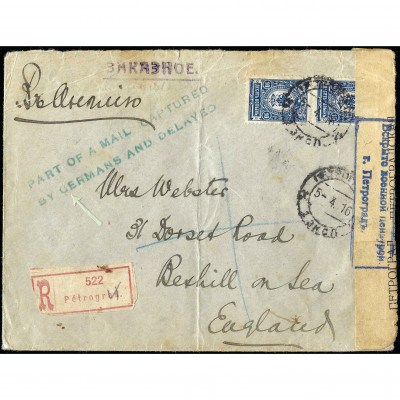 ЗАКАЗНОЕ.
Въ Англію
PART OF A MAIL CAPTURED
BY GERMANS AND DELAYED
Mrs Webster
31 Dorset Road
Bexhill on Sea
England
R
522
5-4.16
Вскрыто военной цензурой.
г. Петроградъ.